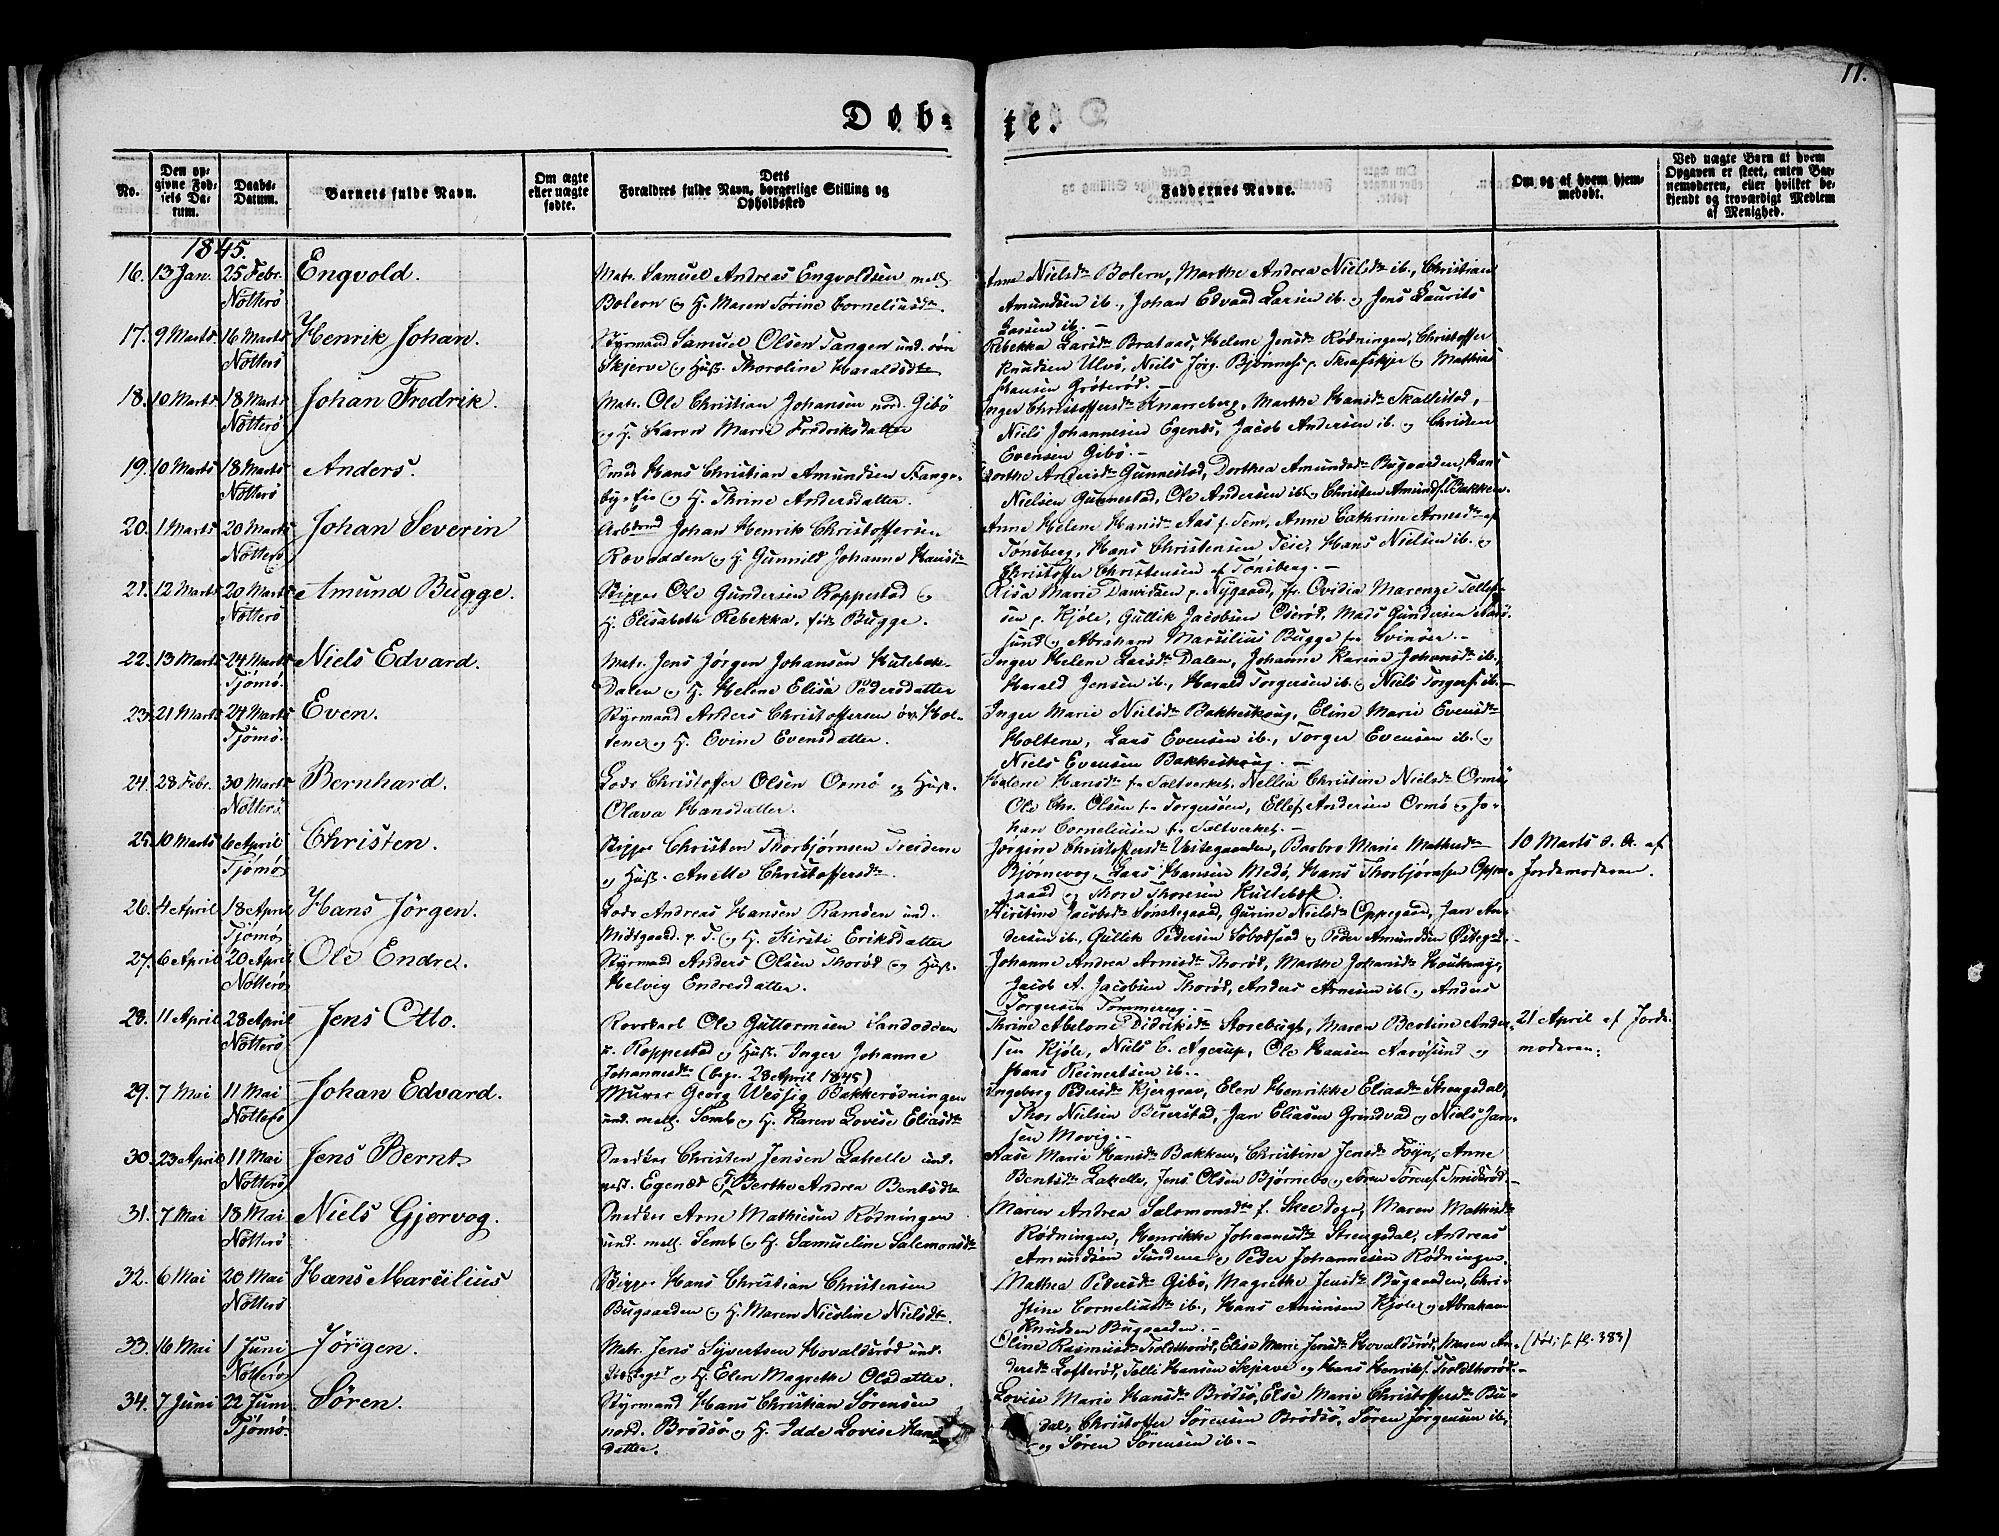 11.
Døb-te.
No.
Den opgivne Fødsels Datum.
Daabs-Datum.
Barnets fulde Navn.
Om ægte eller uægte fødte.
Dets Forældres fulde Navn, borgerlige Stilling og Opholdssted
Faddernes Navne.
Om og af hvem hjemmedøbt.
Ved uægte Børn at hvem Opgaven er skeet, enten Barnemoderen, eller hvilket bekjendt og troværdigt Medlem af Menighed.
1845.
16. 13 Jan. 25 Febr. Nötterö Engvold.
Matr. Samuel Andreas Engvoldsen mell.
Bolærn og H. Maren Torine Corneliusdtr
Anne Nielsdtr Bolern, Marthe Andrea Nielsdtr ib., Christian
Amundsen ib., Johan Edvard Larsen ib. og Jens Laurits
Larsen ib. –
17. 9 Marts 16 Marts Nötterö Henrik Johan.
Styrmand Samuel Olsen Tangen und. söre
Skjerve og Huss. Thoroline Haraldsdtr
Rebekka Larsdtr Brataas, Helene Jensdtr Rödningen, Christoffer
Knudsen Ulvö, Niels Jörg. Bjönness p. Skrafskjer og Mathias
Hansen Gröteröd. –
18. 10 Marts 18 Marts Nötterö Johan Fredrik.
Matr. Ole Christian Johansen nord. Gibö
og H. Karen Marie Fredriksdatter
Inger Christoffersdtr Knarreberg, Marthe Hansdtr Skallestad,
Niels Johannesen Egenes, Jacob Andersen ib. og Christen
Evensen Gibö. –
19. 10 Marts 18 Marts Nötterö Anders.
Smed Hans Christian Amundsen
og H. Thrine Andersdatter.
Dorthe Andersdtr Gunnestad, Dorthea Amundsdtr Bugaarden, Hans
Nielsen Gunnestad, Ole Andersen ib. og Christen Amunds. Bakken.
20. 1 Marts 20 Marts Nötterö Johan Severin
Arbmd Johan Henrik Christoffersen
Rævodden og H. Gunnild Johanne Hansdtr
Anne Helene Hansdtr Aas f. Sem, Anne Cathrine Arnesdtr af
Tönsberg, Hans Christensen Teie, Hans Nielsen ib. og
Christoffer Christensen af Tönsberg. –
21. 12 Marts 20 Marts Nötterö Amund Bugge.
Skipper Ole Gundersen Roppestad og
H. Elisabeth Rebekka, föd Bugge.
Risa Marie Davidsen p. Nygaard, fr. Ovidia Marenze Tellef-
sen p. Kjöle, Gullik Jacobsen Oseröd, Mads Gundersen Aarö-
sund og Abraham Marcilius Bugge fra Svinöer. –
22. 13 Marts 24 Marts Tjömö. Niels Edvard.
Matr. Jens Jörgen Johansen Hulebak-
Dalen og H. Helene Elisa Pedersdatter
Inger Helene Larsdtr Dalen, Johanne Karine Johansdtr ib.,
Harald Jensen ib., Harald Torgersen ib. og Niels Torgers. ib. –
23. 21 Marts 24 Marts Tjömö. Even.
Styrmand Anders Christoffersen öv. Hol-
tene og H. Evine Evensdatter.
Inger Marie Nielsdtr Bakkeskoug, Eline Marie Evensdtr
Holtene, Lars Evensen ib., Torger Evensen ib. og
Niels Evensen Bakkeskoug. –
24. 28 Febr. 30 Marts Nötterö Bernhard.
Lods Christoffer Olsen Ormö og Huss.
Olava Hansdatter.
Helene Hansdtr fra Saltverket, Nellia Christine Nielsdtr Ormö
Ole Chr. Olsen fra Torgersöen, Ellef Andersen Ormö og Jo-
han Corneliusen fra Saltverket. –
25. 10 Marts 6 April Tjömö Christen.
Skipper Christen Thorbjörnsen Treidene
og Huss. Anette Christoffersdtr.
Jörgine Christoffersdtr Vestegaarden, Barbro Marie Mathisdtr
Bjönevog, Lars Hansen Medö, Hans Thorbjörnsen Oppe-
gaard og Thore Thoresen Kullebæk.
10 Marts d. A. af
Jordemoderen.
26. 4 April 18 April Tjömö Hans Jörgen.
Lods Andreas Hansen Ramsen und.
Midtgaard p. T. og H. Kirsti Eriksdatter
Kirstine Jacobsdtr Sönstegaard, Gurine Nielsdtr Oppegaard, Jan An-
dersen ib., Gullik Pedersen Sobodsaad og Peder Amundsen Östegd. –
27. 6 April 20 April Nötterö Ole Endre.
Styrmand Anders Olsen Thoröd og Huss.
Helvig Endresdatter.
Johanne Andrea Arnisdtr Thoröd, Marthe Johansdtr Houkaug,
Jacob A. Jacobsen Thoröd, Anders Arnesen ib. og Anders
Torgersen Tommerøy. –
28. 11 April 28 April Nötterö Jens Otto.
Rorskarl Ole Guttormsen Sandodden
u. Roppestad og Huss. Inger Johanne
Johannesdtr (begr. 28 April 1845)
Thrine Abelone Didriksdtr Storebugt, Maren Bertine Ander-
sen Kjöle, Niels C. Agerup, Ole Hansen Aarösund og
Hans Reinertsen ib. –
21 April af Jorde-
moderen.
29. 7 Mai 11 Mai Nötterö Johan Edvard.
Murer Georg Wessig Bakkerödningen
und. mell. Semb og H. Karen Lovise Eliasdtr
Ingeborg Pedersdtr Kjærgrav, Elen Henrikke Eliasdtr Strengsdal,
Thor Nielsen Buerstad, Jan Eliasen Grindvad og Niels Jan-
sen Movig. –
30. 23 April 11 Mai Nötterö Jens Bernt.
Snedker Christen Jensen Lakelle und.
vest. Egenæs og Berthe Andrea Bentsdtr
Aase Marie Hansdtr Bakken, Christine Jensdtr Föyn, Anne
Bentsdtr Lakelle, Jens Olsen Björnebo og Sören Sörens. Smideröd. –
31. 7 Mai 18 Mai Nötterö Niels Gjervog.
Snedker Arne Mathisen Rödningen
und. mell. Semb og H. Samueline Salomonsdtr
Maren Andrea Salomonsdtr f. Skee Sogn, Maren Mathisdtr
Rödningen, Henrikke Johannesdtr Strengsdal, Andreas
Amundsen Sundene og Peder Johannesen Rödningen.
32. 6 Mai 20 Mai Nötterö Hans Marcilius
Skipper Hans Christian Christensen
Bugaarden og H. Maren Nicoline Nielsdtr.
Mathea Pedersdtr Gibö, Magrethe Jensdtr Bugaarden, Chri-
stine Corneliusdtr ib., Hans Amunsen Kjöle og Abraham
Knudsen Bugaarden. –
33. 16 Mai 1 Juni Nötterö Jörgen.
Matr. Jens Syvertsen Hovaldsröd und.
og H. Elen Magrethe Olsdatter.
Oline Rasmusdtr Skoldthoröd, Elise Marie Jensdtr Hovaldsröd, Maren An-
dersdtr Lofteröd, Telle Hansen Skjerve og Hans Henriks. Skoldthoröd. –
34. 7 Juni 22 Juni Tjömö. Sören.
Styrmand Hans Christian Sörensen
nord. Brödsö og H. Idde Lovise Hans-
datter.
Lovise Marie Hansdtr Brödsö, Else Marie Christoffersdtr Bu-
dal, Christoffer Sörensen Brödsö, Sören Jörgensen ib.,
og Sören Sörensen ib. –